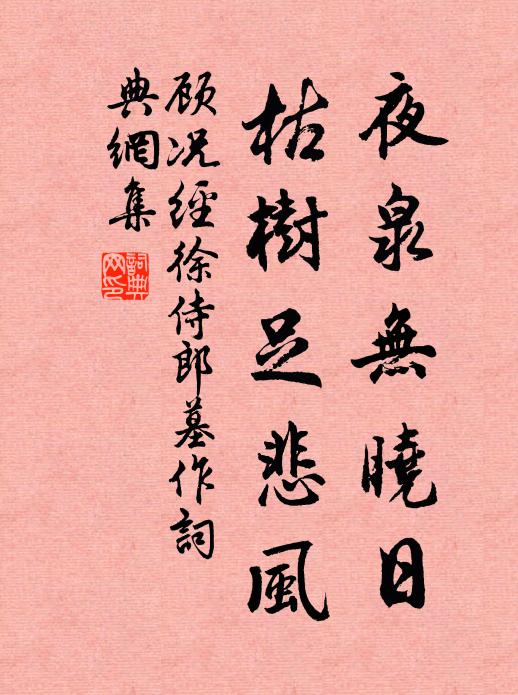 夜泉無曉日
枯樹足悲風
顾况經徐侍郎墓作詞
典網集
詞典
网印